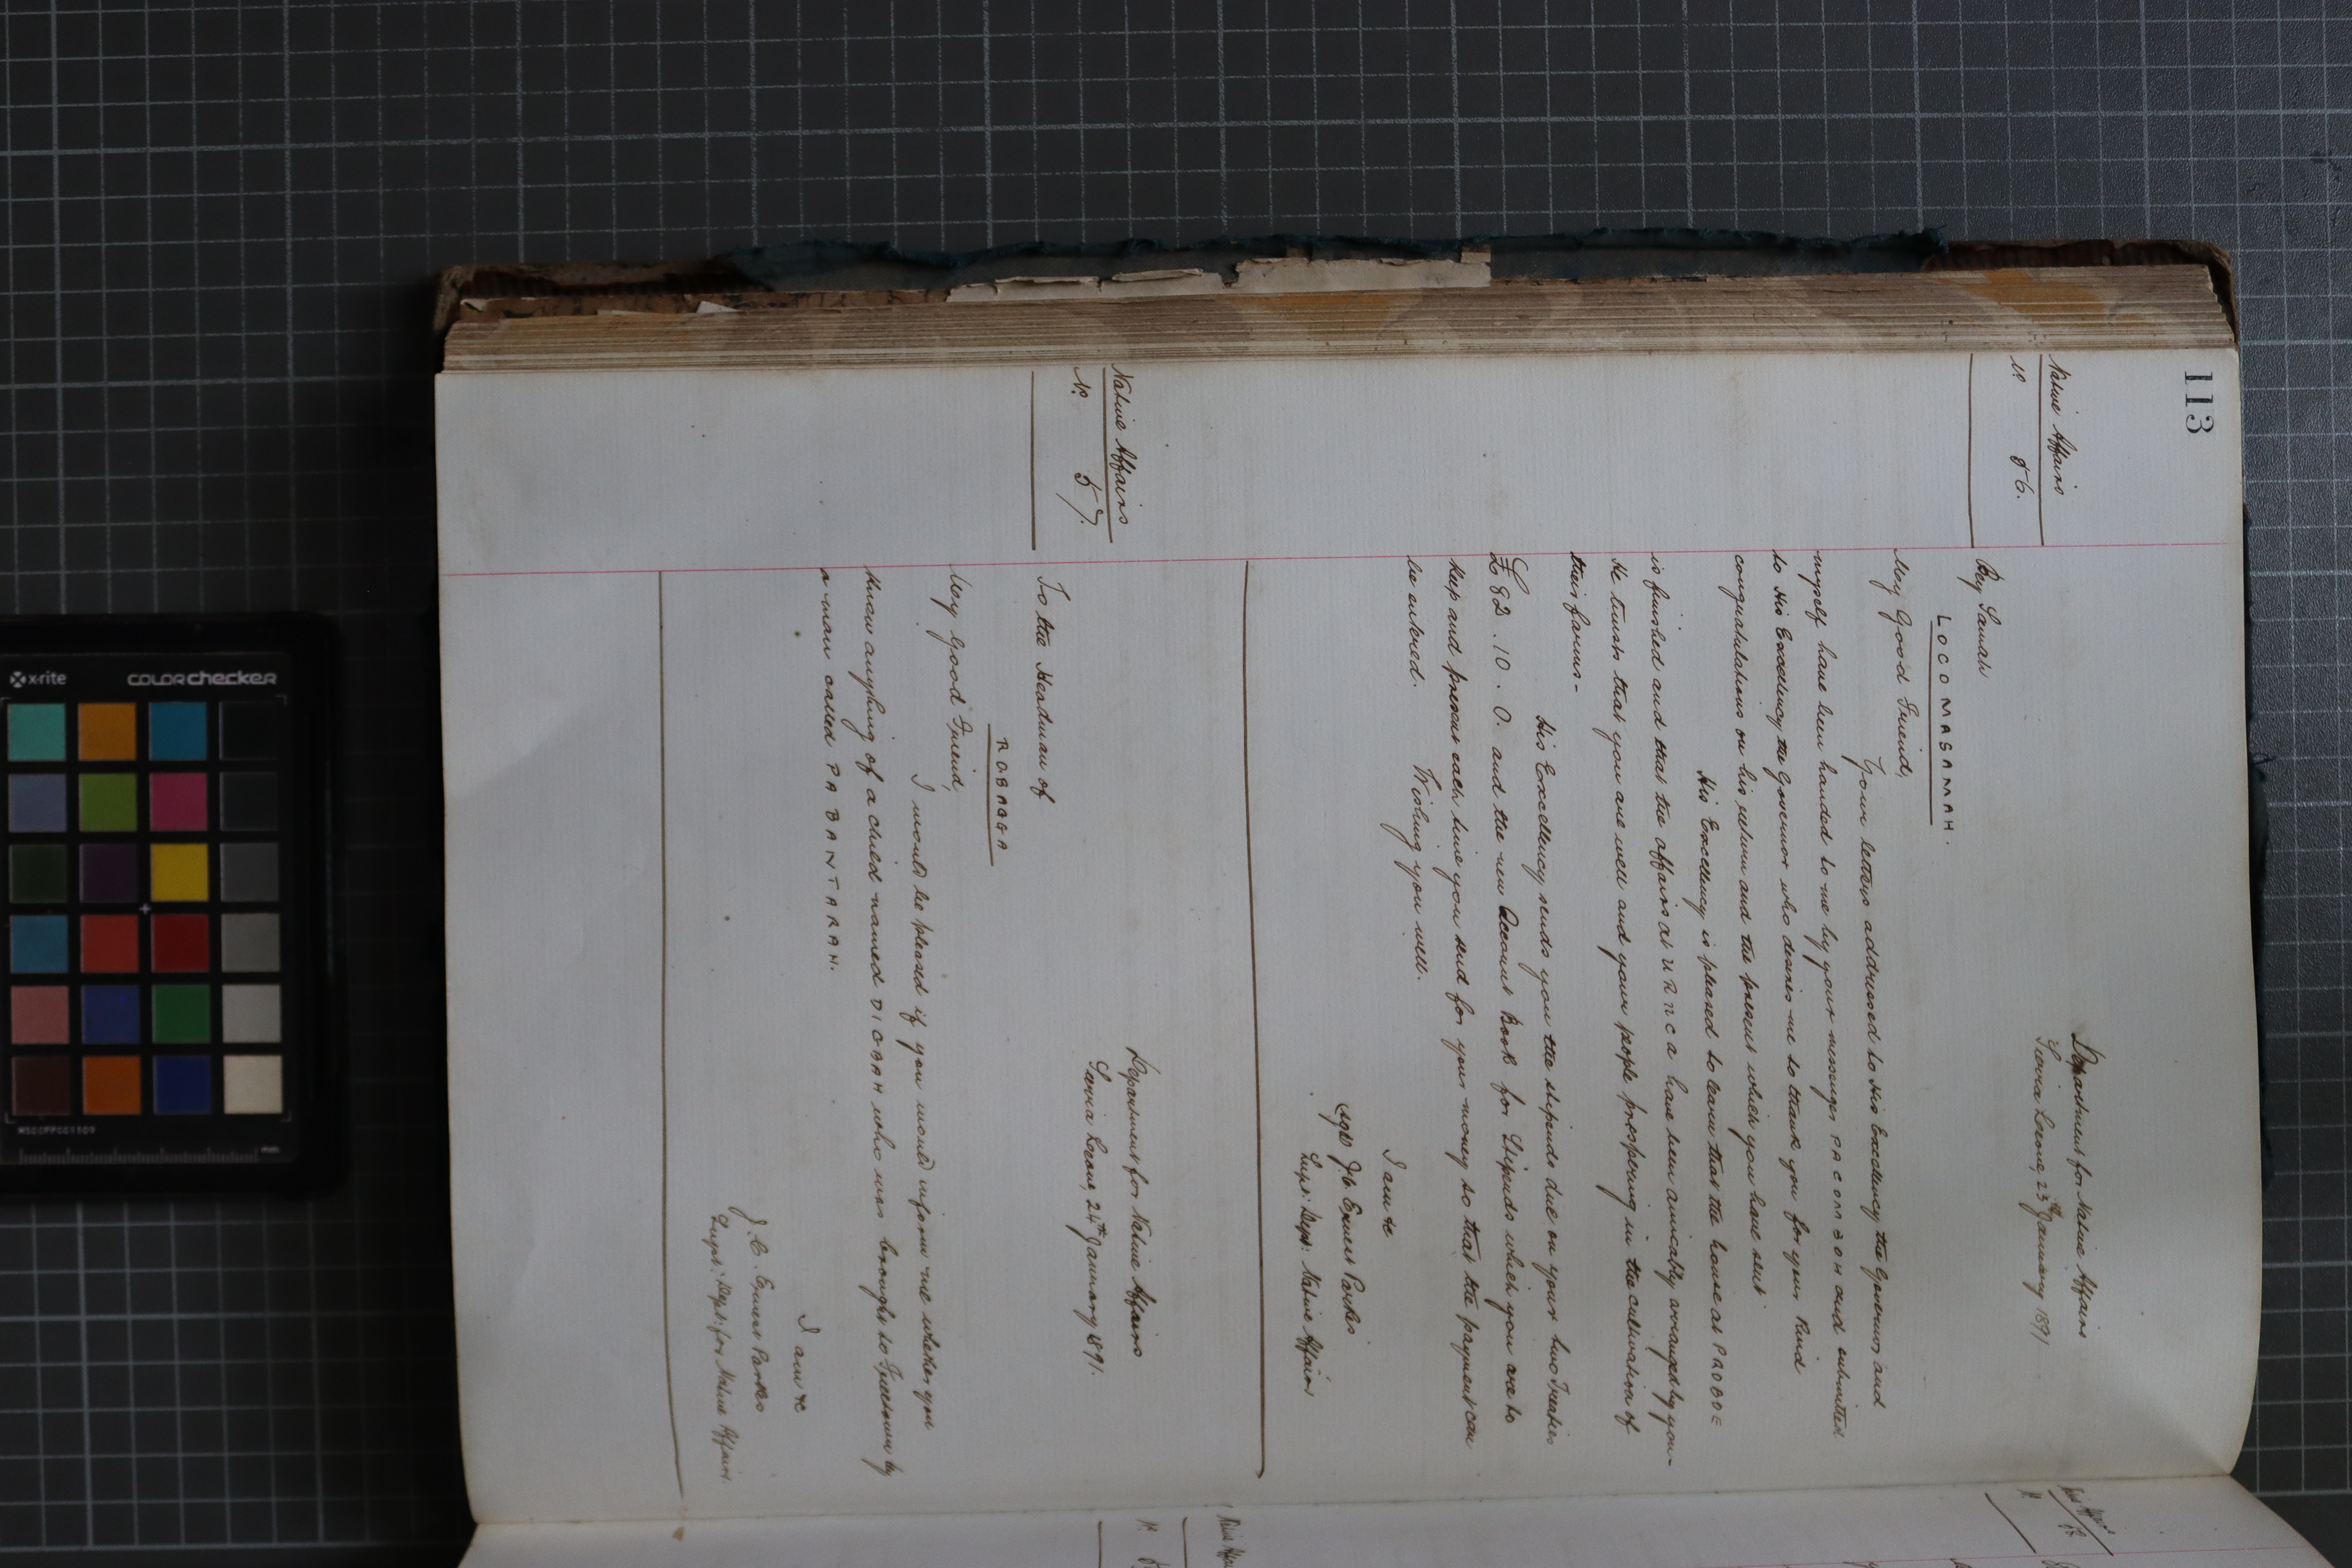 113
Native Affairs
No. 56.
Department for Native Affairs
Sierra Leone, 23rd January 1891
Bey Samah
LOCOMASAMAH.
My Good Friend,
Your letters addressed to His Excellency the Governor, and
myself have been handed to me by your messenger, and submitted
to His Excellency the Governor who desires me to thank you for your kind
congratulations on his return and the present which you have sent
His Excellency is pleased to learn that the house at PROBOE
is finished and that the affairs at have been amicably arranged by you-
He trusts that you are well and your people prospering in the cultivation of
their farms-
His Excellency sends you the stipends due on your two Treaties
£82.10.0. and the new Account Book for Stipends which you are to
keep and present each time you send for your money so that the payment can
be entered. Wishing you well.
I am &c
(sgd) J. C. Ernest Parkes
Supt: Dept: Native Affairs
Native Affairs
No. 57.
Department for Native Affairs
Sierra Leone, 24th January 1891.
To the Headman of
ROBAGGA
My Good Friend,
I would be pleased if you would inform me whether you
know anything of a child named DICBAH who was brought to Freetown by
a man called PA BANTARAH.
I am &c
J. C. Ernest Parkes
Supt: Dept: for Native Affairs.